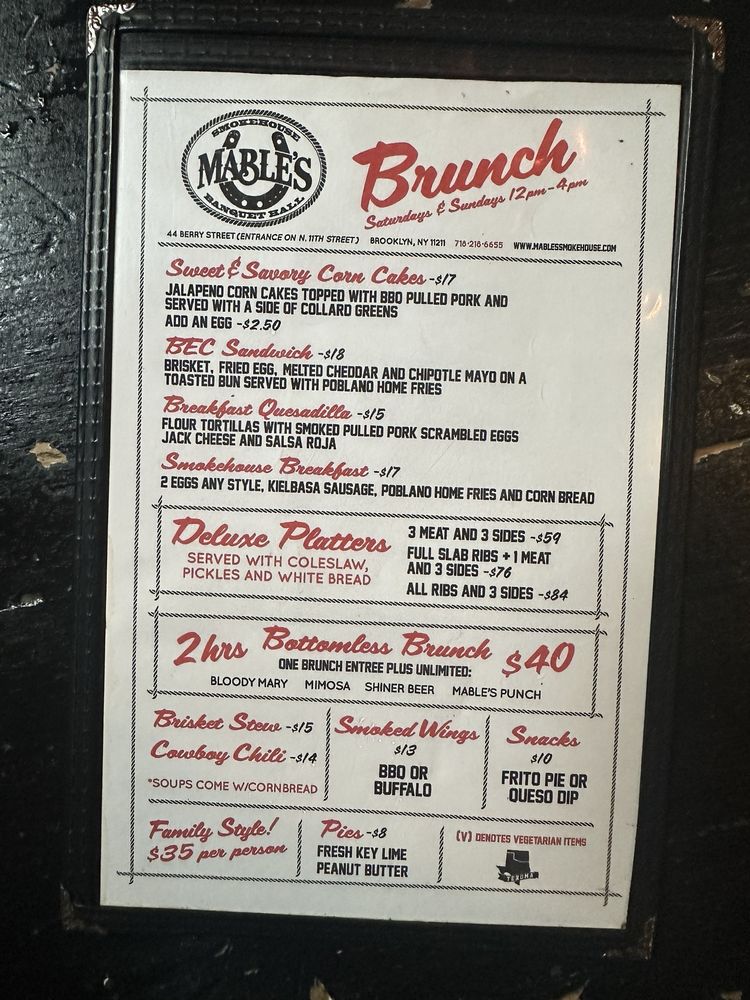 SMOKEHOUSE
MABLE'S
BANQUET HALL
Brunch
Saturdays & Sundays 12pm-4pm
44 BERRY STREET (ENTRANCE ON N. 11TH STREET) BROOKLYN, NY 11211 718-218-6655 WWW.MABLESSMOKEHOUSE.COM
Sweet & Savory Corn Cakes -$17
JALAPENO CORN CAKES TOPPED WITH BBQ PULLED PORK AND
SERVED WITH A SIDE OF COLLARD GREENS
ADD AN EGG -$2.50
BEC Sandwich -$18
BRISKET, FRIED EGG, MELTED CHEDDAR AND CHIPOTLE MAYO ON A
TOASTED BUN SERVED WITH POBLANO HOME FRIES
Breakfast Quesadilla -$15
FLOUR TORTILLAS WITH SMOKED PULLED PORK SCRAMBLED EGGS
JACK CHEESE AND SALSA ROJA
Smokehouse Breakfast -$17
2 EGGS ANY STYLE, KIELBASA SAUSAGE, POBLANO HOME FRIES AND CORN BREAD
Deluxe Platters
SERVED WITH COLESLAW,
PICKLES AND WHITE BREAD
3 MEAT AND 3 SIDES -$59
FULL SLAB RIBS + 1 MEAT
AND 3 SIDES -$76
ALL RIBS AND 3 SIDES -$84
2 hrs Bottomless Brunch $40
ONE BRUNCH ENTREE PLUS UNLIMITED:
BLOODY MARY MIMOSA SHINER BEER MABLE'S PUNCH
Brisket Stew -$15
Cowboy Chili -$14
*SOUPS COME W/CORNBREAD
Smoked Wings
$13
BBQ OR
BUFFALO
Snacks
$10
FRITO PIE OR
QUESO DIP
Family Style!
$35 per person
Pies -$8
FRESH KEY LIME
PEANUT BUTTER
(V) DENOTES VEGETARIAN ITEMS
TEXOMA